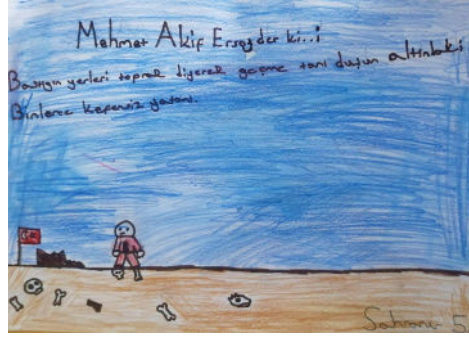 Mehmet Akif Ersoy der ki..!
Bastığın yerleri toprak diyerek geçme tanı düşün altındaki
Binlerce kefensiz yatanı.
5